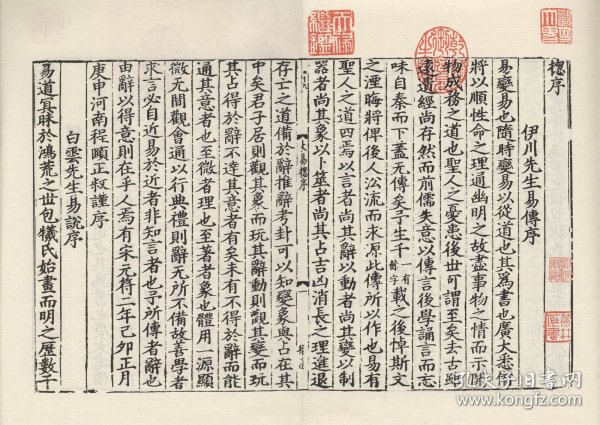 揔序
伊川先生易傳序
易變易也隨時變易以從道也其為書也廣大悉備
將以順性命之理通幽明之故盡事物之情而示開
物成務之道也聖人之憂患後世可謂至矣去古雖
遠遺經尚存然而前儒失意以傳言後學誦言而忘
味自秦而下蓋無傳矣予生千一有餘字載之後悼斯文
之湮晦將俾後人沿流而求源此傳所以作也易有
聖人之道四焉以言者尚其辭以動者尚其變以制
器者尚其象以卜筮者尚其占吉凶消長之理進退
大易揔序
存亡之道備於辭推辭考卦可以知變象與占在其
中矣君子居則觀其象而玩其辭動則觀其變而玩
其占得於辭不達其意者有矣未有不得於辭而能
通其意者也至微者理也至著者象也體用一源顯
微無間觀會通以行典禮則辭無所不備故善學者
求言必自近易於近者非知言者也予所傳者辭也
由辭以得意則在乎人焉有宋元符二年己卯正月
庚申河南程頤正叔謹序
白雲先生易說序
易道冥昧於鴻荒之世包犧氏始畫而明之歷數千
孔夫子旧书网
www.kongfz.com